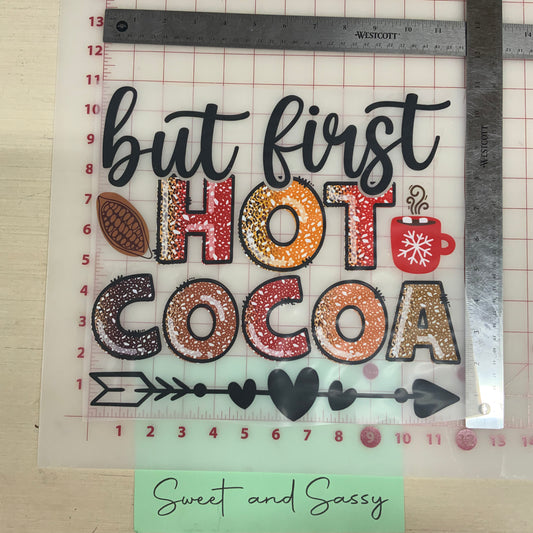 WESTCOTT
WESTCOTT
but first
HOT
COCOA
13
12
11
10
9
8
7
6
5
4
3
2
1
1 2 3 4 5 6 7 8 9 10 11 12 13
Sweet and Sassy